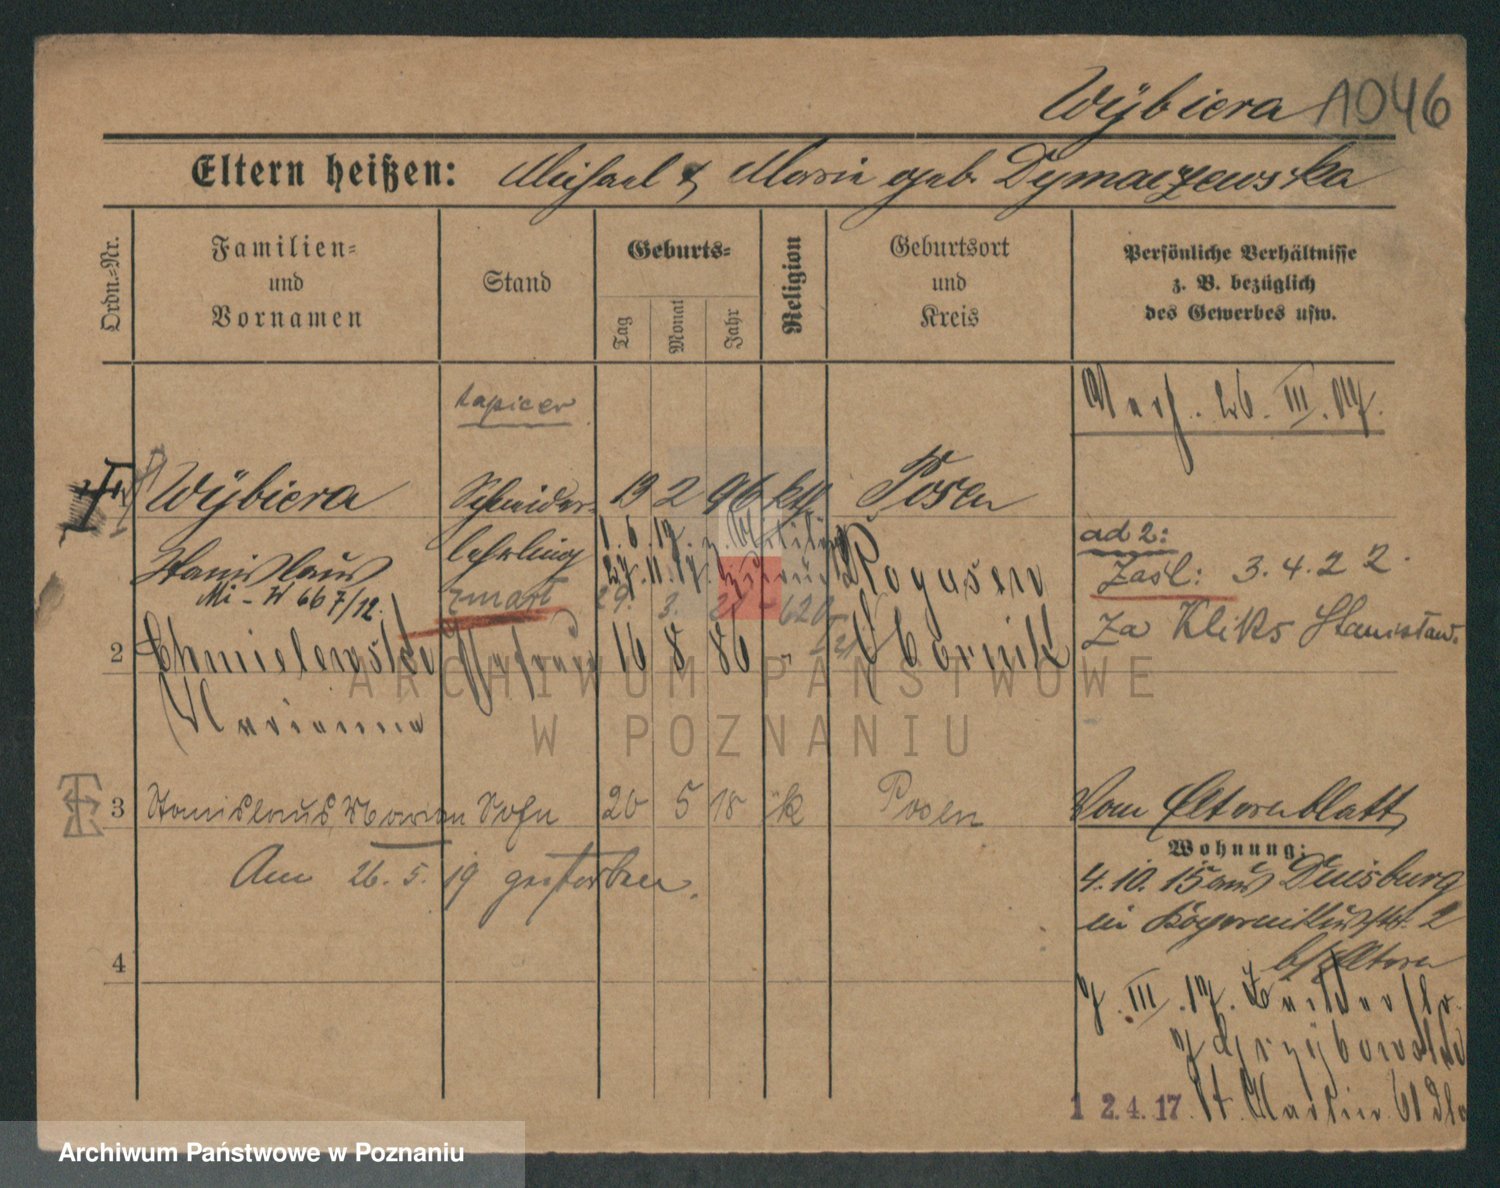 Wÿbiera 1046
Eltern heißen: Michael & Marie geb. Dymaczewska
Ordn.=Nr.
Familien=
und
Vornamen
Stand
Geburts=
Tag
Monat
Jahr
Religion
Geburtsort
und
Kreis
Persönliche Verhältnisse
z. B. bezüglich
des Gewerbes usw.
tapicer
26. III. 17.
Wÿbiera Schneider- 19 2 96 kth Posen
Stanislaus lehrling 1. 6. 17. Rogasen
Mi - W 667/12.
zmarł 29. 3. 22 - 620
ad 2:
Zaśl: 3.4.22.
za Kliks Stanisław.
2 Chmielewska Ehefrau 16 8 86 " Obornik
Marianna
3 Stanislaus, Marian Sohn 20 5 18 k Posen
Am 26. 5. 19 gestorben.
4
Vom Elternblatt
Wohnung:
4. 10. 15 aus Duisburg
in 2
b/ Eltern
7. III. 17.
Grzybowski
12.4.17. St. Martin 61
ARCHIWUM PAŃSTWOWE
W POZNANIU
Archiwum Państwowe w Poznaniu